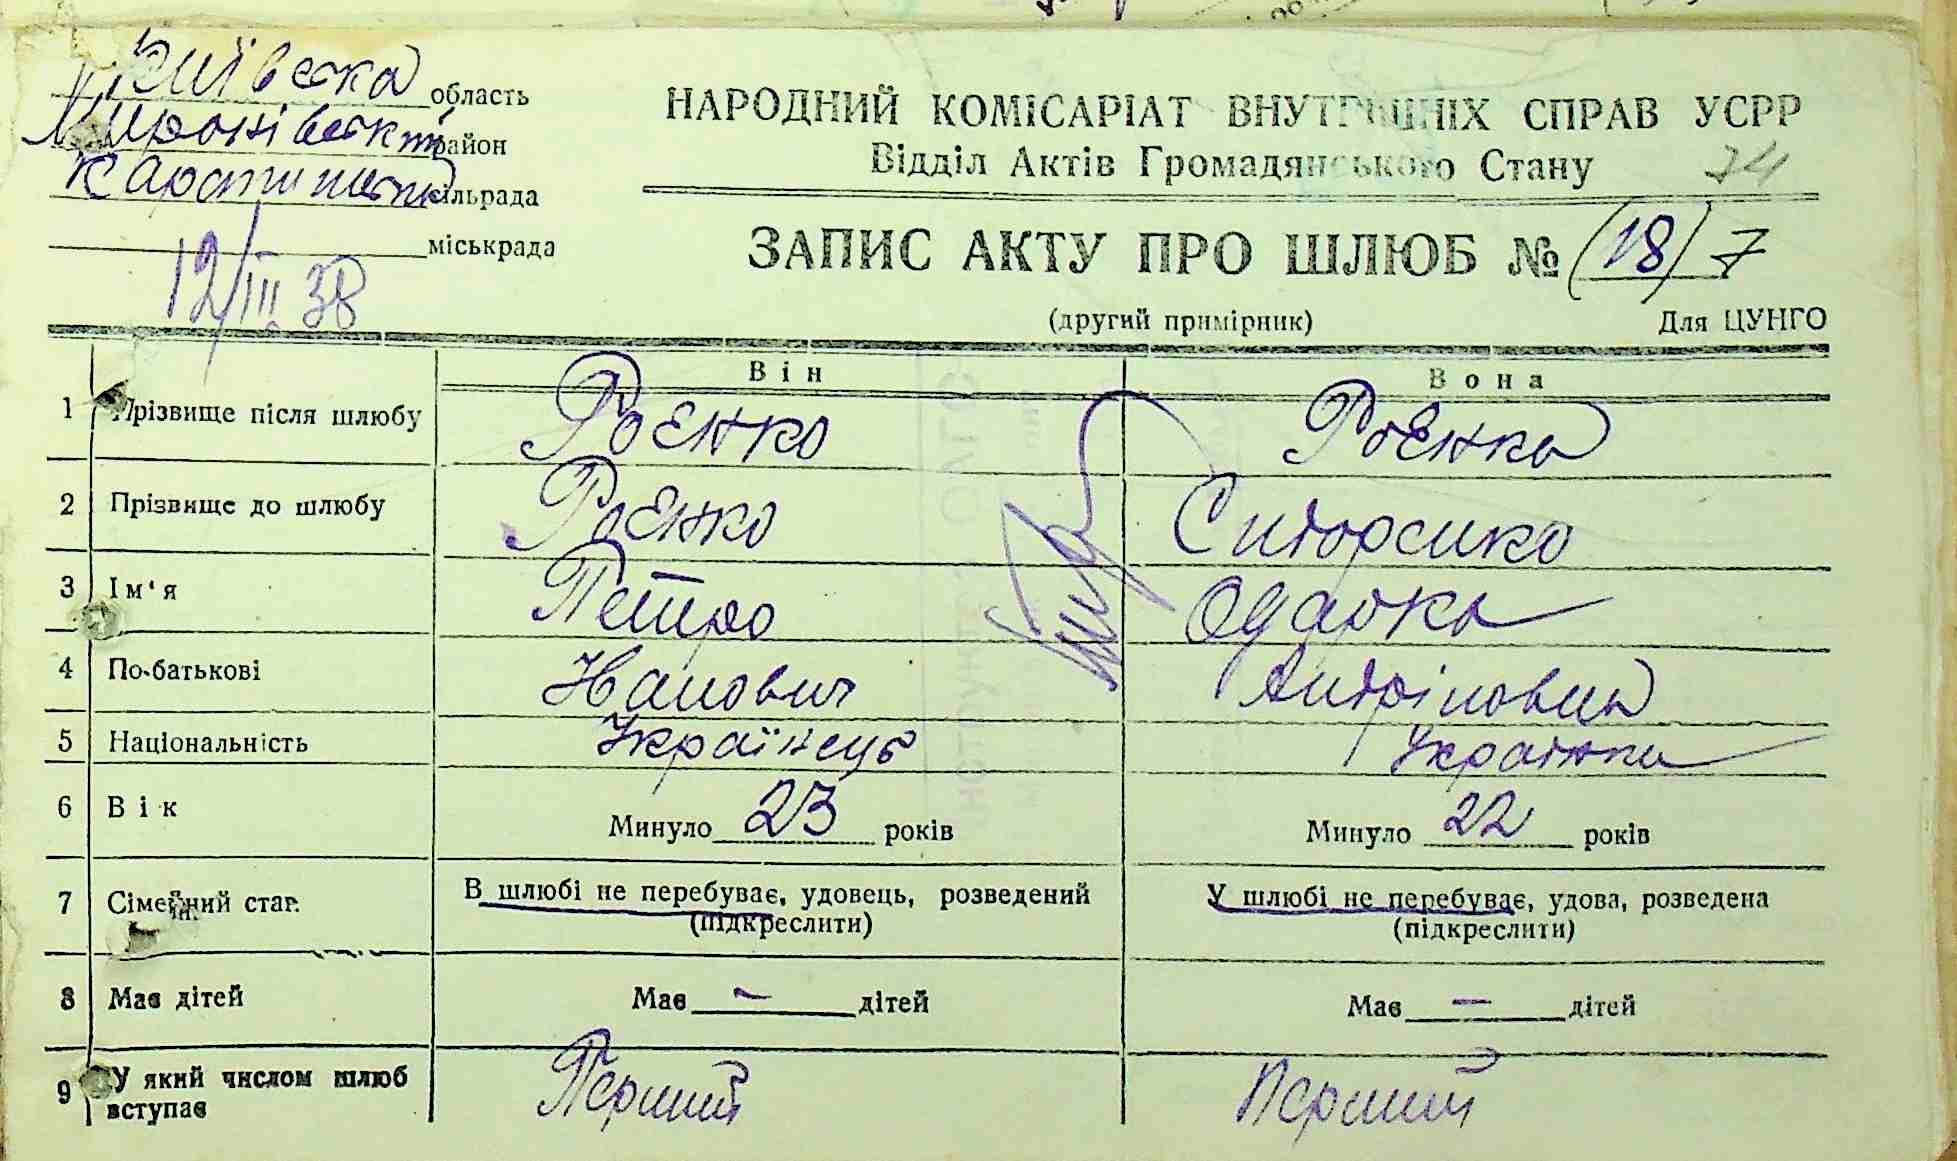 Київська область
Миронівський район
сільрада
міськрада
12/III 38
НАРОДНИЙ КОМІСАРІАТ ВНУТРІШНІХ СПРАВ УСРР
Відділ Актів Громадянського Стану 74
ЗАПИС АКТУ ПРО ШЛЮБ № (18) 7
(другий примірник) Для ЦУНГО
Він Вона
1 Прізвище після шлюбу Роєнко Роєнко
2 Прізвище до шлюбу Роєнко
3 Ім'я Петро Одарка
4 По-батькові Иванович
5 Національність Українець Українка
6 Вік Минуло 23 років Минуло 22 років
7 Сімейний стан. В шлюбі не перебуває, удовець, розведений У шлюбі не перебуває, удова, розведена
(підкреслити) (підкреслити)
8 Має дітей Має — дітей Має — дітей
9 У який числом шлюб вступає Перший Перший